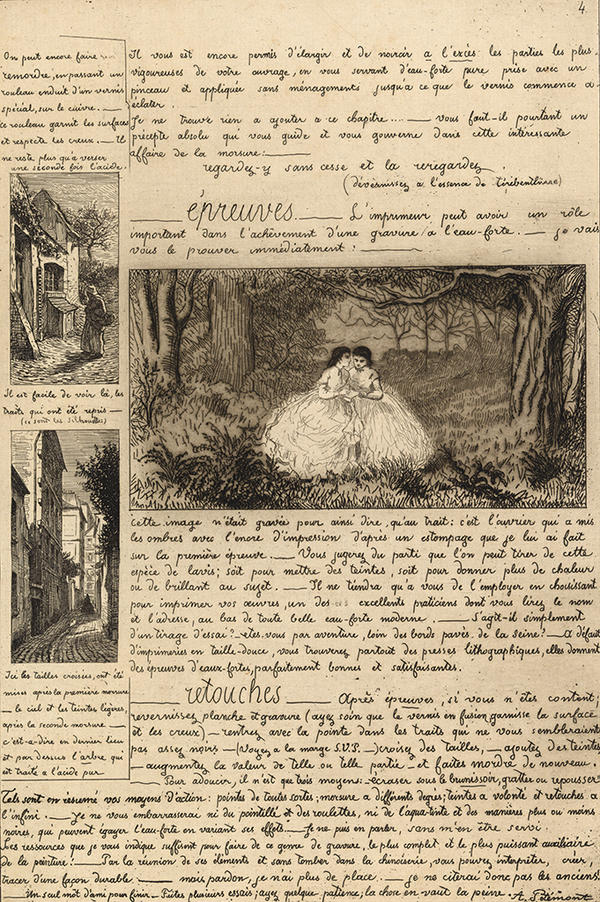 4
On peut encore faire
remordre, en passant un
rouleau enduit d'un vernis
spécial, sur le cuivre. —
ce rouleau garnit les surfaces
et respecte les creux. — Il
ne reste plus qu'a verser
une seconde fois l'acide.
Il est facile de voir là, les
traits qui ont été repris —
(ce sont les silhouettes)
Ici les tailles croisées, ont été
mises après la première morsure
— le ciel et les teintes légères,
après la seconde morsure —
c'est-a-dire en dernier lieu
et par dessus l'arbre qui
est traité a l'acide pur
Il vous est encore permis d'élargir et de noircir a l'excès les parties les plus
vigoureuses de votre ouvrage, en vous servant d'eau-forte pure prise avec un
pinceau et appliquée sans ménagements jusqu'a ce que le vernis commence a
éclater.
Je ne trouve rien a ajouter a ce chapitre... — vous faut-il pourtant un
précepte absolu qui vous guide et vous gouverne dans cette intéressante
affaire de la morsure: —
regardez-y sans cesse et la reregardez
(dévernissez a l'essence de térébenthine)
épreuves. — L'imprimeur peut avoir un rôle
important dans l'achèvement d'une gravure a l'eau-forte. — je vais
vous le prouver immédiatement: —
cette image n'était gravée pour ainsi dire, qu'au trait: c'est l'ouvrier qui a mis
les ombres avec l'encre d'impression d'après un estompage que je lui ai fait
sur la première épreuve. — Vous jugerez du parti que l'on peut tirer de cette
espèce de lavis; soit pour mettre des teintes, soit pour donner plus de chaleur
ou de brillant au sujet. — Il ne tiendra qu'a vous de l'employer en choisissant
pour imprimer vos œuvres, un des excellents praticiens dont vous lirez le nom
et l'adresse, au bas de toute belle eau-forte moderne. — S'agit-il simplement
d'un tirage d'essai? — etes-vous par aventure, loin des bords pavés de la Seine? — A défaut
d'imprimeries en taille-douce, vous trouverez partout des presses lithographiques, elles donnent
des épreuves d'eaux-fortes, parfaitement bonnes et satisfaisantes.
retouches — Après épreuves, si vous n'êtes content;
revernissez planche et gravure (ayez soin que le vernis en fusion garnisse la surface
et les creux) — rentrez avec la pointe dans les traits qui ne vous sembleraient
pas assez noirs — (Voyez a la marge S.V.P. —) croisez des tailles, — ajoutez des teintes
— augmentez la valeur de telle ou telle partie — et faites mordre de nouveau.
Pour adoucir, il n'est que trois moyens: écraser sous le brunissoir, gratter ou repousser
Tels sont en résumé vos moyens d'action: pointes de toutes sortes; morsure a différents degrés; teintes a volonté et retouches a
l'infini. — Je ne vous embarrasserai ni du pointillé et des roulettes, ni de l'aqua-tinte et des manières plus ou moins
noires, qui peuvent égayer l'eau-forte en variant ses effets — Je ne puis en parler, sans m'en être servi.
Les ressources que je vous indique suffisent pour faire de ce genre de gravure, le plus complet et le plus puissant auxiliaire
de la peinture! — Par la réunion de ses éléments et sans tomber dans la chinoiserie, vous pouvez interpréter, créer,
tracer d'une façon durable — mais pardon, je n'ai plus de place. — je ne citerai donc pas les anciens!
Un seul mot d'ami pour finir — Faites plusieurs essais; ayez quelque patience; la chose en vaut la peine — A.